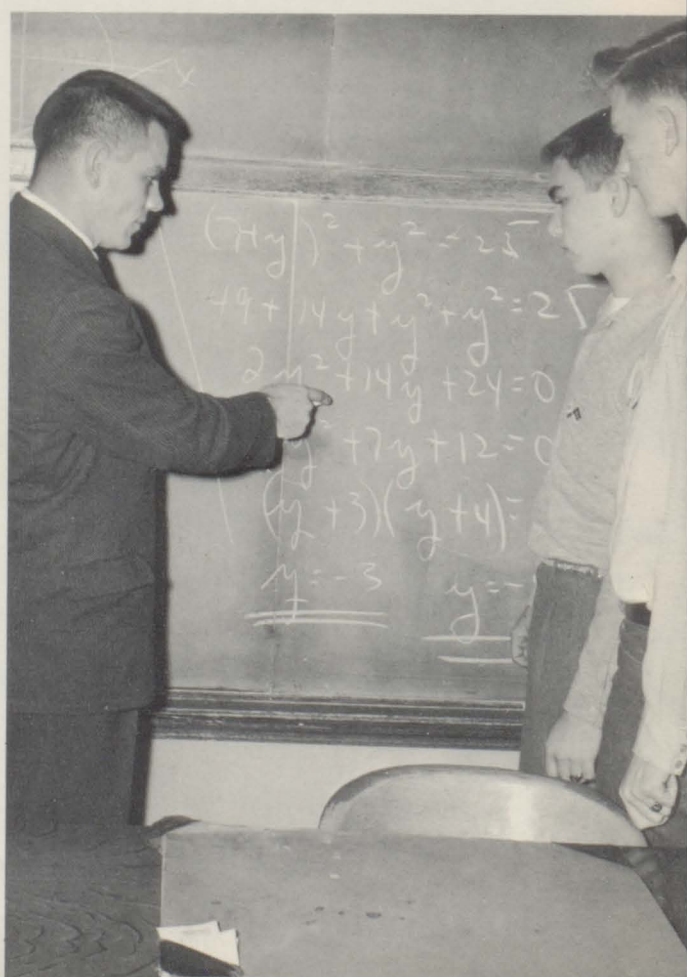 x
(7+y)² + y² = 25
49 + 14y + y² + y² = 25
2y² + 14y + 24 = 0
y² + 7y + 12 = 0
(y + 3)(y + 4) =
y = -3 y = -